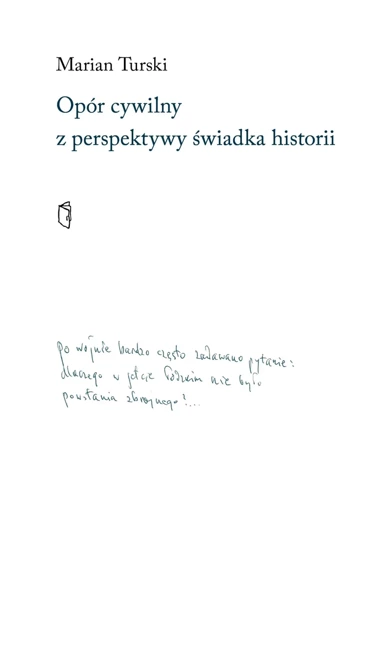 Marian Turski
Opór cywilny
z perspektywy świadka historii
Po wojnie bardzo często zadawano pytanie:
dlaczego w getcie łódzkim nie było
powstania zbrojnego?...